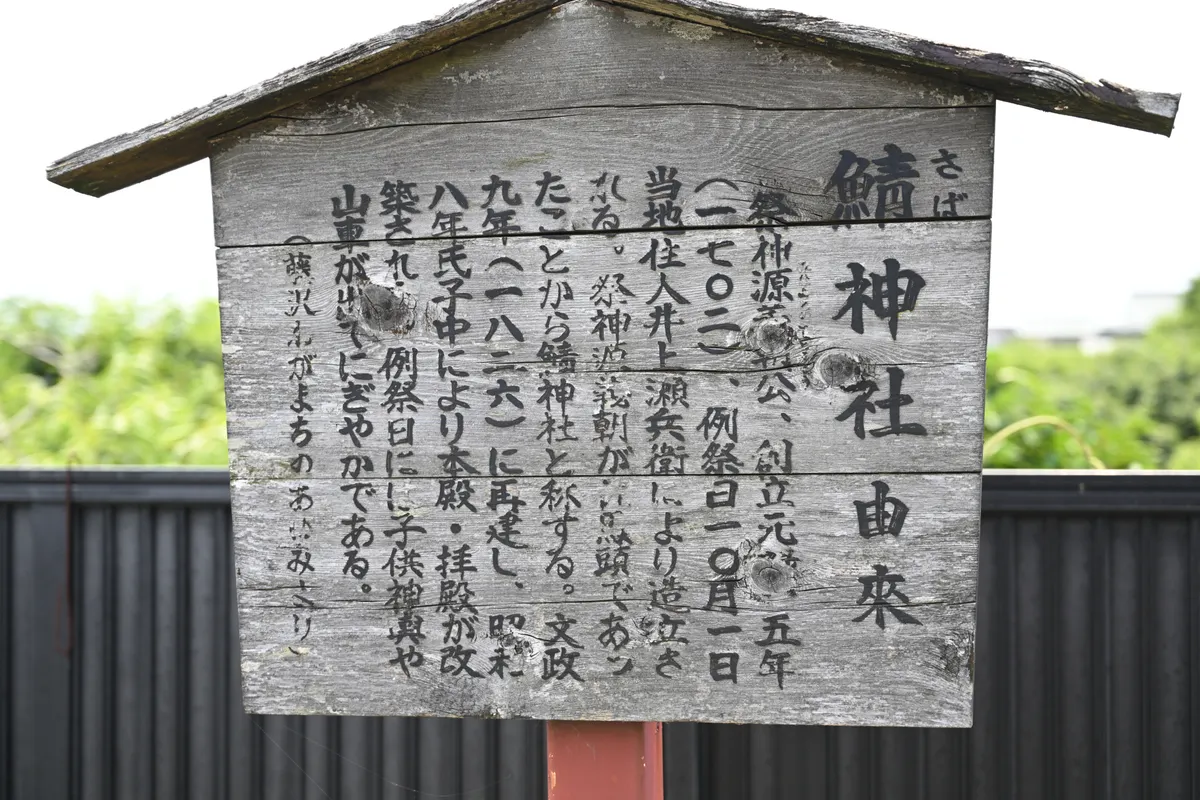 さば
鯖神社由來
祭神源義朝公、創立元禄一五年
(一七〇二)、例祭日一〇月一日
当地住人井上瀬兵衛により造立さ
れる。祭神源義朝が左馬頭であっ
たことから鯖神社と称する。文政
九年(一八二六)に再建し、昭和
八年氏子中により本殿・拝殿が改
築され、例祭日には子供神輿や
山車が出てにぎやかである。
(藤沢わがまちのあゆみより)